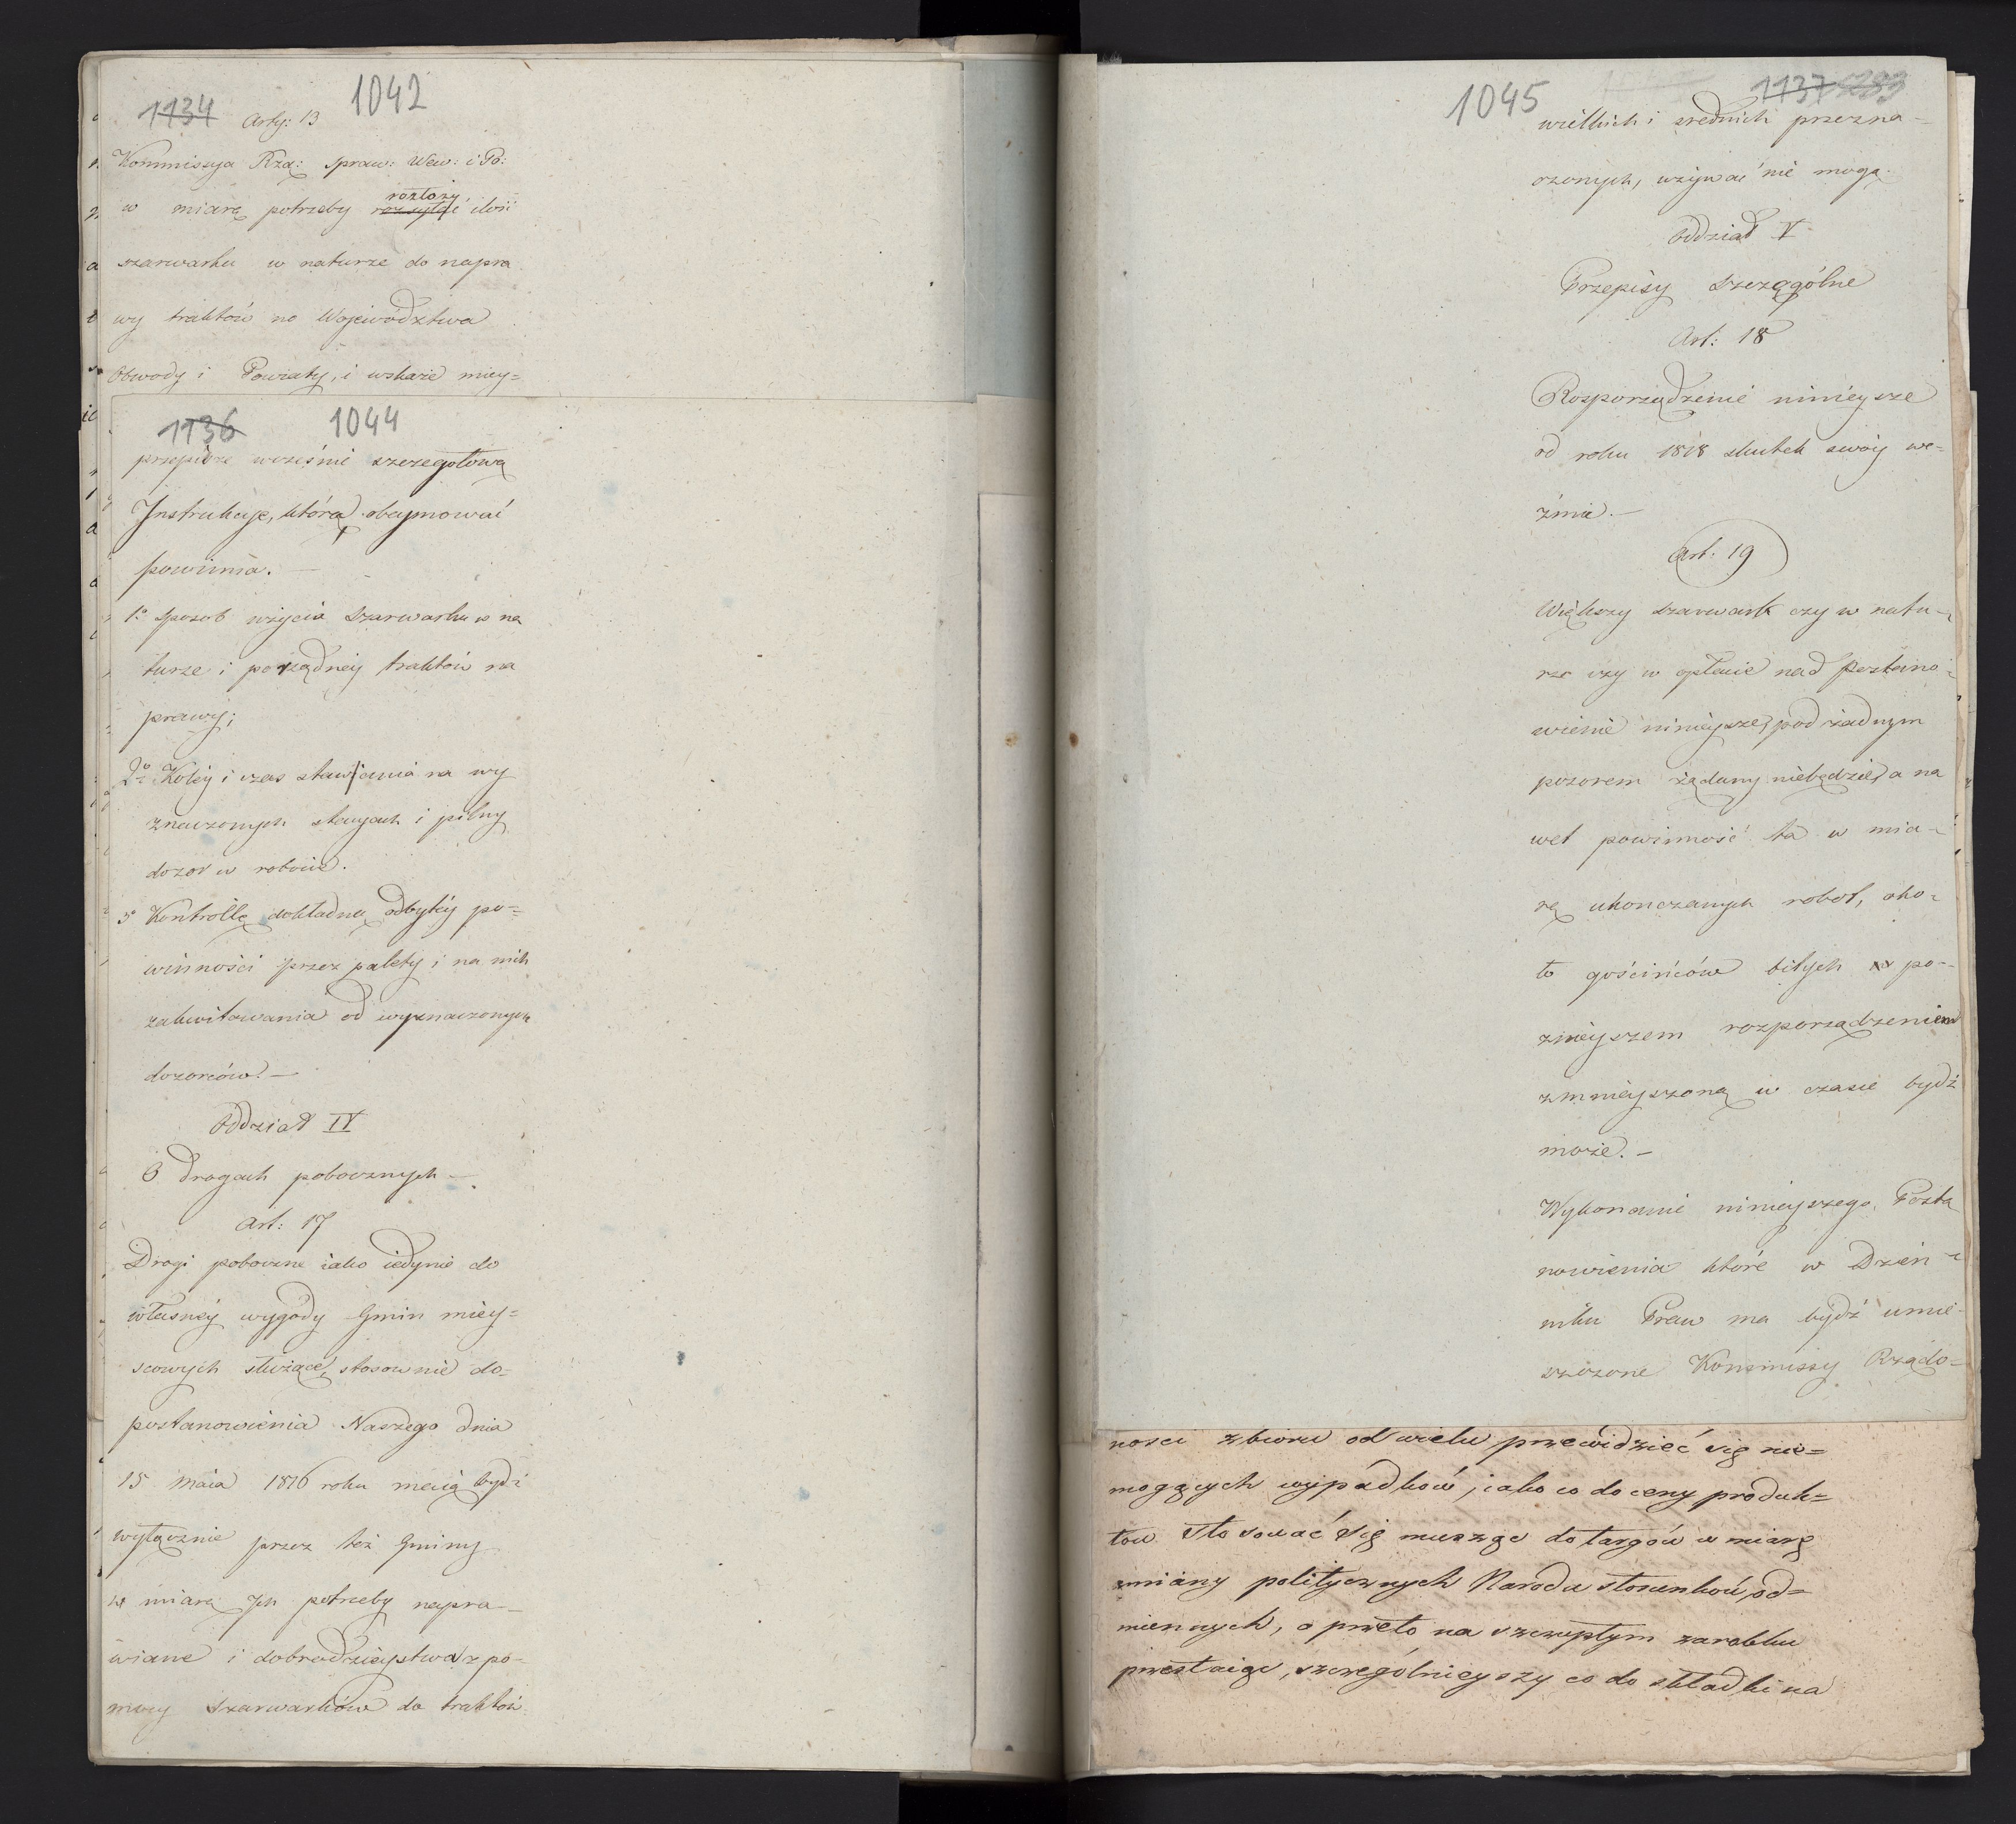 1134 Arty: 13 1042
Kommissya Rzą: Spraw: Wew: i Po:
w miarę potrzeby rozłoży ilość
szarwarku w naturze do napra
wy traktów na Województwa
Obwody i Powiaty, i wskaże miey=
1136 1044
przepisze wcześnie szczegołową
Instrukcyę, która obeymować
powinna. —
1o Sposob użycia Szarwarku w na
turze i porządney traktów na
prawy;
2o Koley i czas stawiania na wy
znaczonych stacyach i pilny
dozor w robocie.
3o Kontrollę dokładną odbytey po=
winności przez palety i na nich
zakwitowania od wyznaczonych
dozorców. —
Oddział IV
O Drogach pobocznych —
Art: 17
Drogi poboczne iako iedynie do
własney wygody Gmin miey=
scowych służące, stosownie do=
postanowienia Naszego dnia
15 Maia 1816 roku maią bydź
wyłącznie przez też Gminy
w miarę Ich potrzeby napra—
wiane i dobrodzieystwa z po-
mocy Szarwarków do traktów
1045 1137 1283
wielkich i srednich przezna=
czonych, używać nie mogą.
Oddział V
Przepisy Szczególne
Art: 18
Rosporządzenie ninieysze
od roku 1818 skutek swóy we=
źmie. —
Art: 19
Większy szarwark czy w natu-
rze czy w opłacie nad Postano-
wienie ninieysze, pod żadnym
pozorem żądany niebędzie, a na
wet powinność ta w mia-
rę ukonczanych robot, oko-
ło gościńców bitych po-
znieyszem rozporządzeniem
zmnieyszoną w czasie bydź
może. —
Wykonanie ninieyszego Posta
nowienia które w Dzien-
niku Praw ma bydź umie-
szczone Kommissy Rządo=
nosci zbioru od wielu przewidzieć się nie=
mogących wypadków, iako co do ceny produk=
tow stosować się muszące do targów w miarę
zmiany politycznych Narodu stosunków, od=
miennych, a przeto na szczupłym zarobku
przestaiąc, szczególnieyszy co do składki na